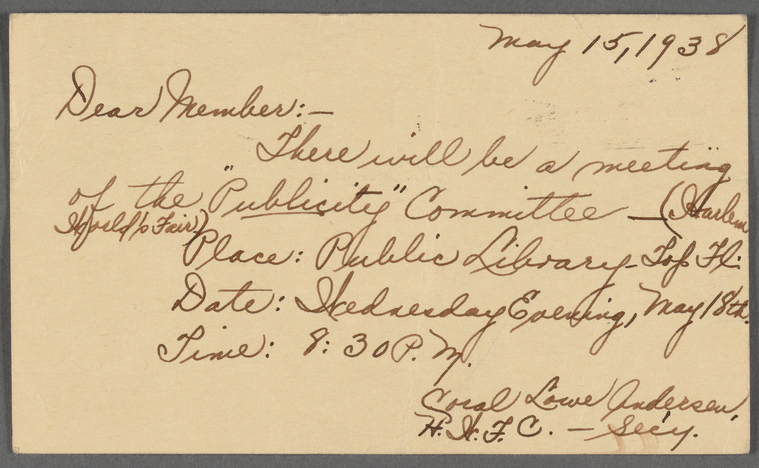 May 15, 1938
Dear Member:—
There will be a meeting
of the "Publicity" Committee — (Harlem
World's Fair)
Place: Public Library - Top Fl.
Date: Wednesday Evening, May 18th.
Time: 8:30 P.M.
Coral Lowe Andersen,
H.W.F.C. — Sec'y.